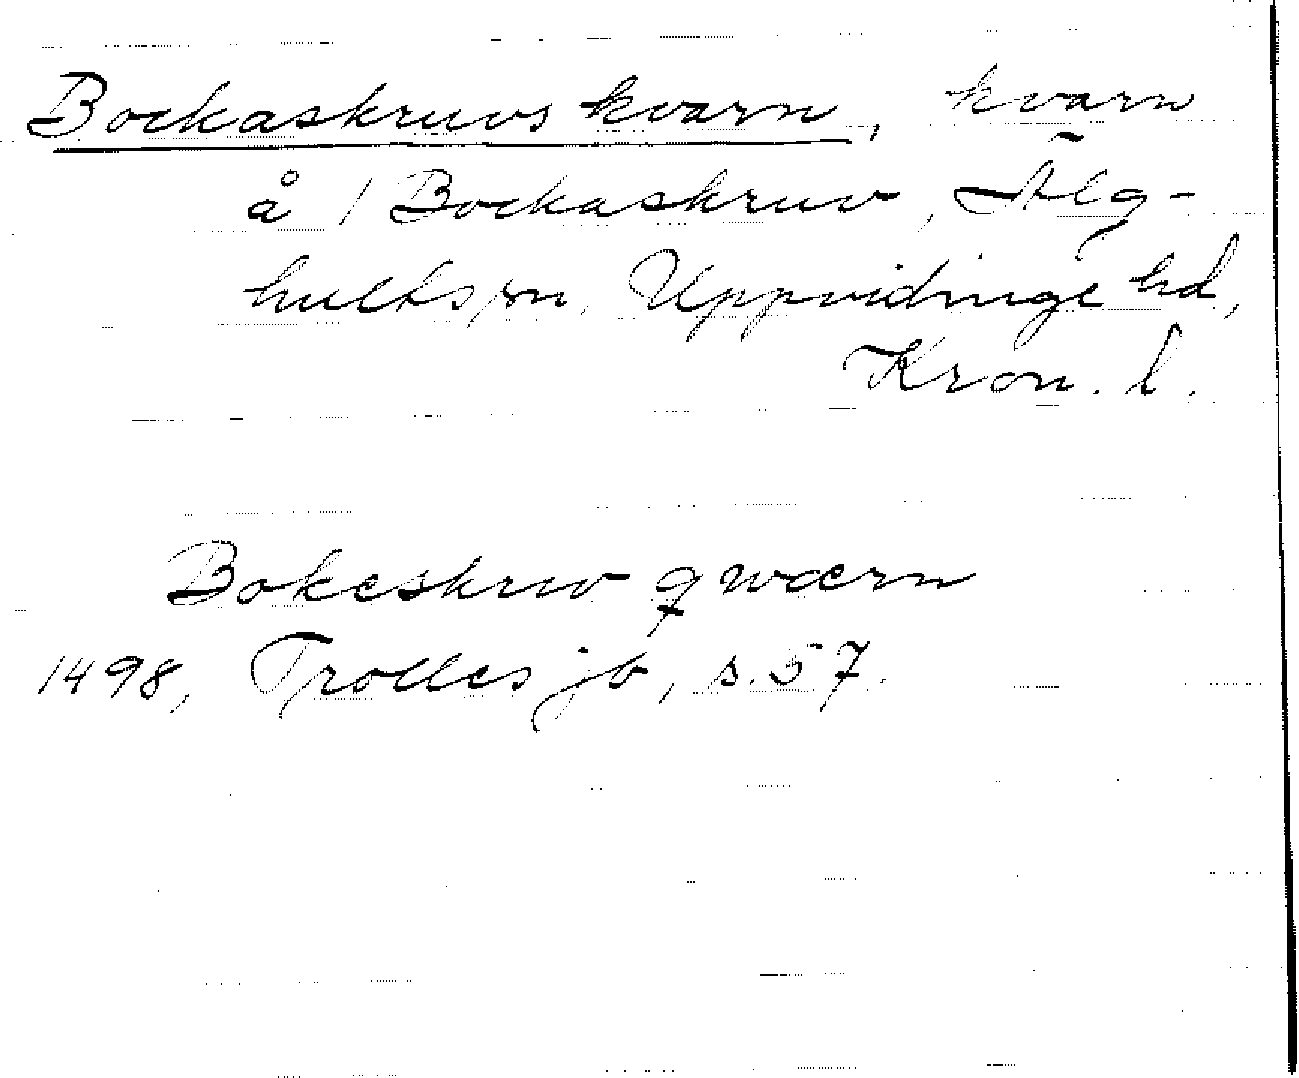 Bockaskruvs kvarn, kvarn
å / Bockaskruv, Älg-
hults sn, Uppvidinge hd,
Kron. l.
Bokeskrw qwærn
1498, Trolles jb, s. 57.